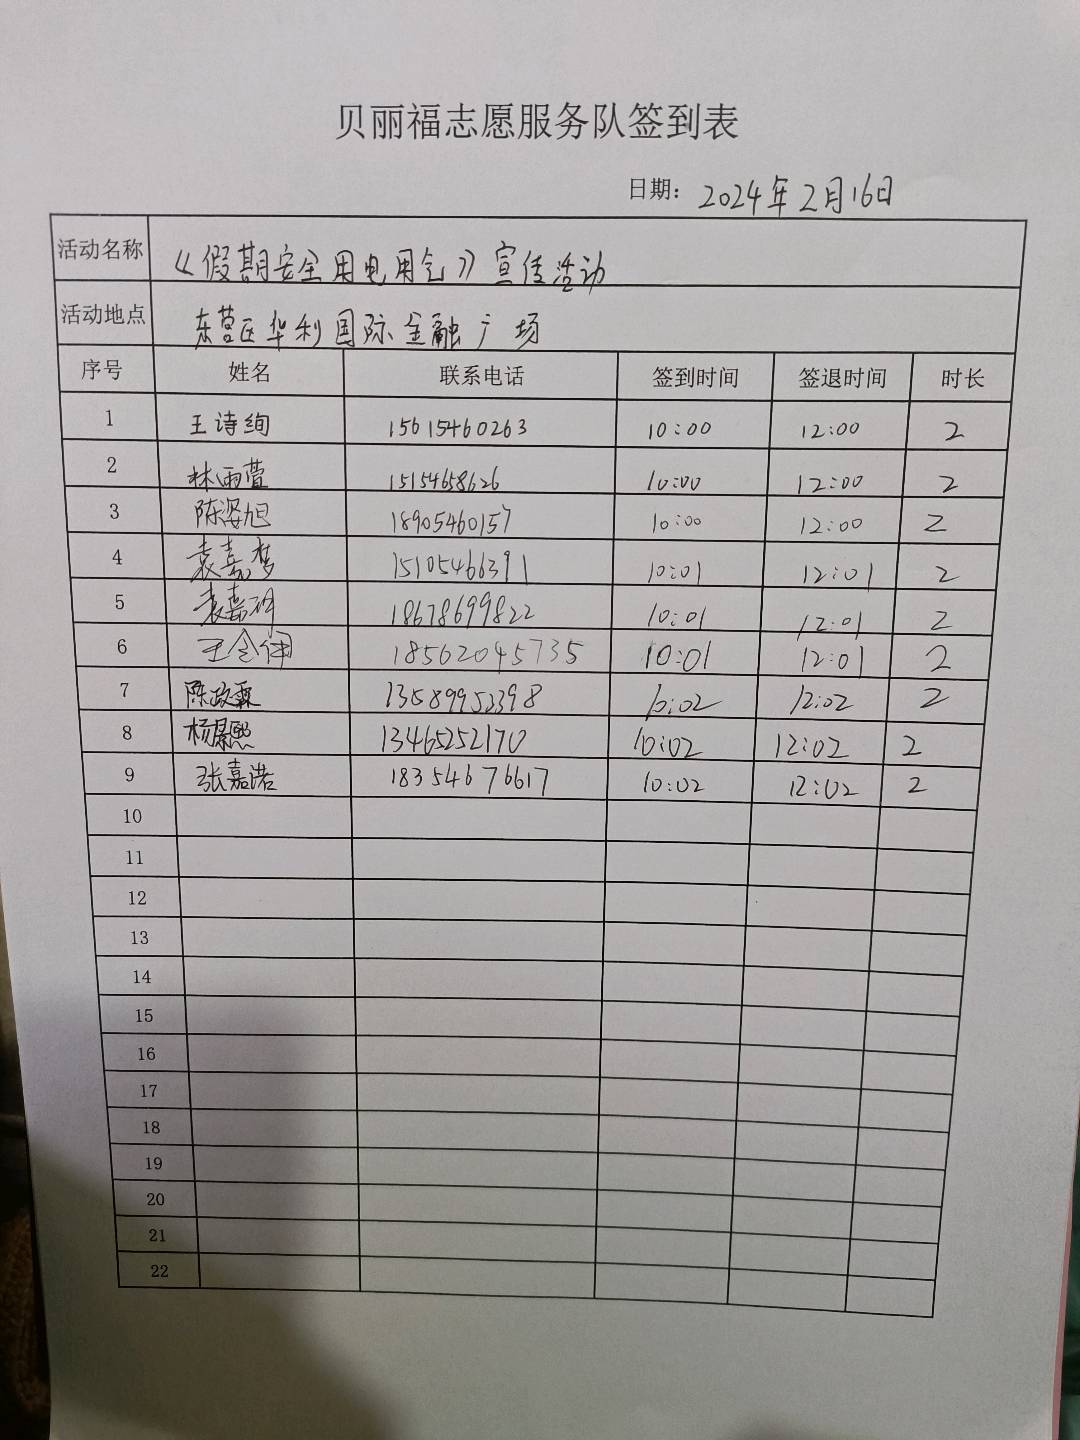 贝丽福志愿服务队签到表
日期：2024年2月16日
活动名称 《假期安全用电用气》宣传活动
活动地点 东营区华利国际金融广场
序号 姓名 联系电话 签到时间 签退时间 时长
1 王诗绚 15615460263 10:00 12:00 2
2 林雨萱 15154658626 10:00 12:00 2
3 陈姿旭 18905460157 10:00 12:00 2
4 袁嘉梦 15105466391 10:01 12:01 2
5 袁嘉 18678699822 10:01 12:01 2
6 王 18562045735 10:01 12:01 2
7 陈政霖 13589952398 10:02 12:02 2
8 杨景熙 13465252170 10:02 12:02 2
9 张嘉诺 18354676617 10:02 12:02 2
10
11
12
13
14
15
16
17
18
19
20
21
22